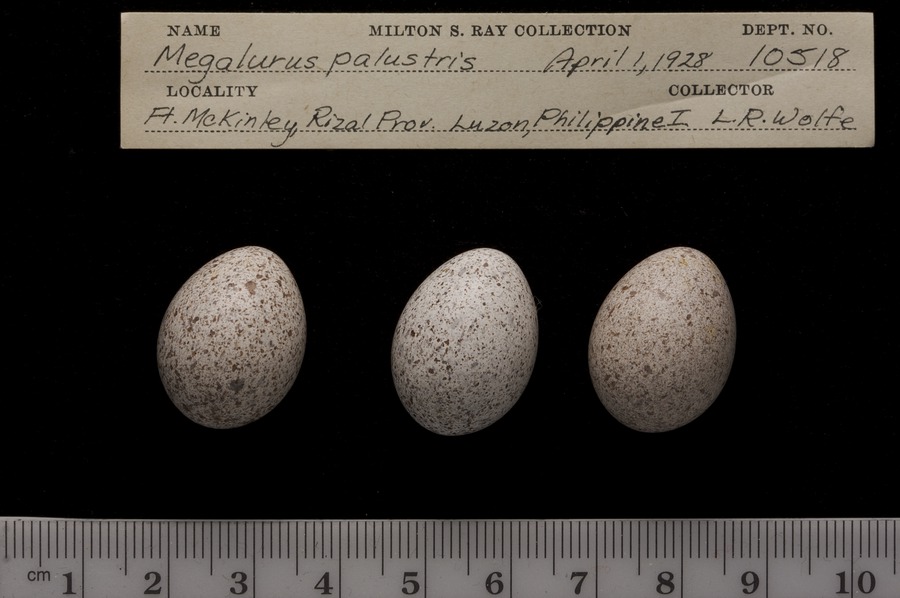 NAME MILTON S. RAY COLLECTION DEPT. NO.
Megalurus palustris April 1, 1928 10518
LOCALITY COLLECTOR
Ft. McKinley, Rizal Prov. Luzon, Philippine I L.R. Wolfe
cm 1 2 3 4 5 6 7 8 9 10